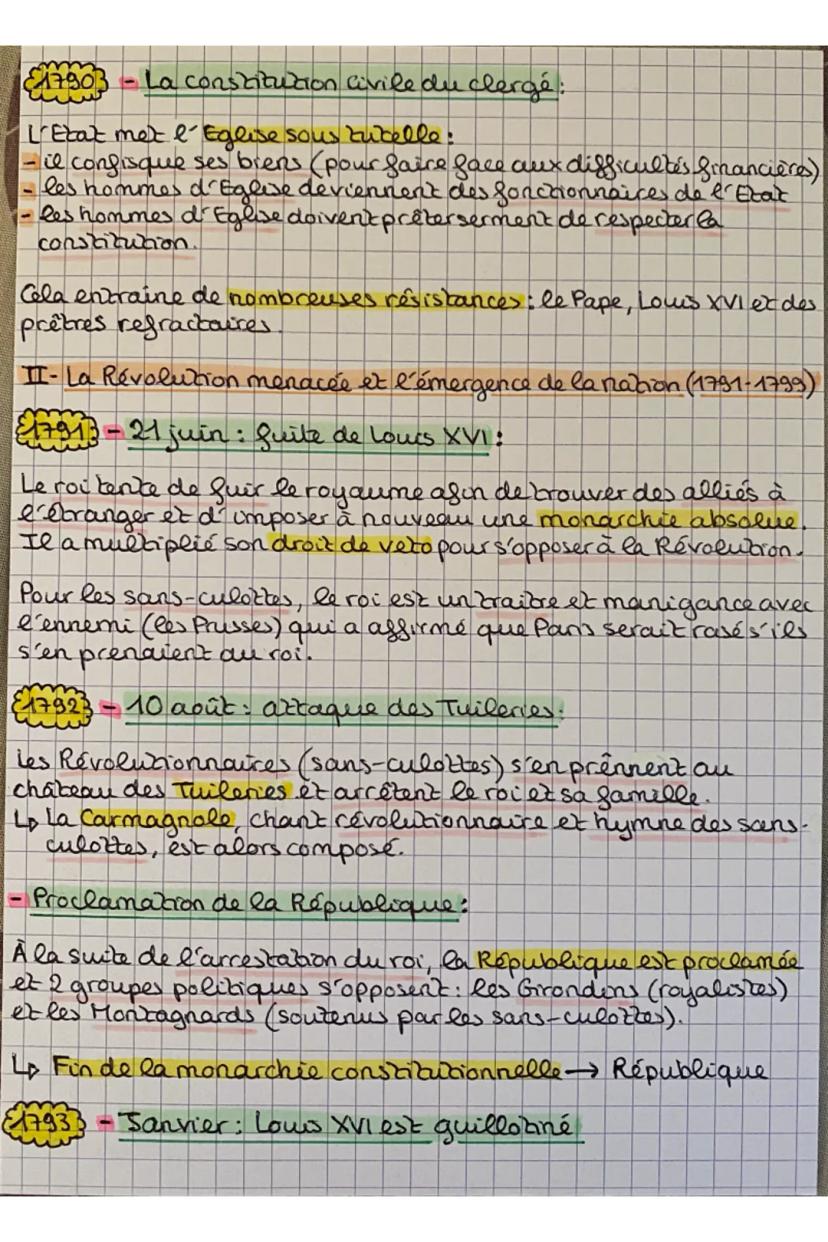 1790 - La constitution civile du clergé :
L'Etat met l'Eglise sous tutelle :
- il confisque ses biens (pour faire face aux difficultés financières)
- les hommes d'Eglise deviennent des fonctionnaires de l'Etat
- les hommes d'Eglise doivent prêter serment de respecter la
constitution.
Cela entraine de nombreuses résistances : le Pape, Louis XVI et des
prêtres refractaires.
II- La Révolution menacée et l'émergence de la nation (1791-1799)
1791 - 21 juin : fuite de Louis XVI :
Le roi tente de fuir le royaume afin de trouver des alliés à
l'étranger et d'imposer à nouveau une monarchie absolue.
Il a multiplié son droit de veto pour s'opposer à la Révolution.
Pour les sans-culottes, le roi est un traitre et manigance avec
l'ennemi (les Prusses) qui a affirmé que Paris serait rasé s'ils
s'en prenaient au roi.
1792 - 10 août : attaque des Tuileries :
Les Révolutionnaires (sans-culottes) s'en prênnent au
château des Tuileries et arrêtent le roi et sa famille.
↳ La Carmagnole, chant révolutionnaire et hymne des sans-
culottes, est alors composé.
- Proclamation de la République :
À la suite de l'arrestation du roi, la République est proclamée
et 2 groupes politiques s'opposent : les Girondins (royalistes)
et les Montagnards (soutenus par les sans-culottes).
↳ Fin de la monarchie constitutionnelle → République
1793 - Janvier : Louis XVI est guillotiné